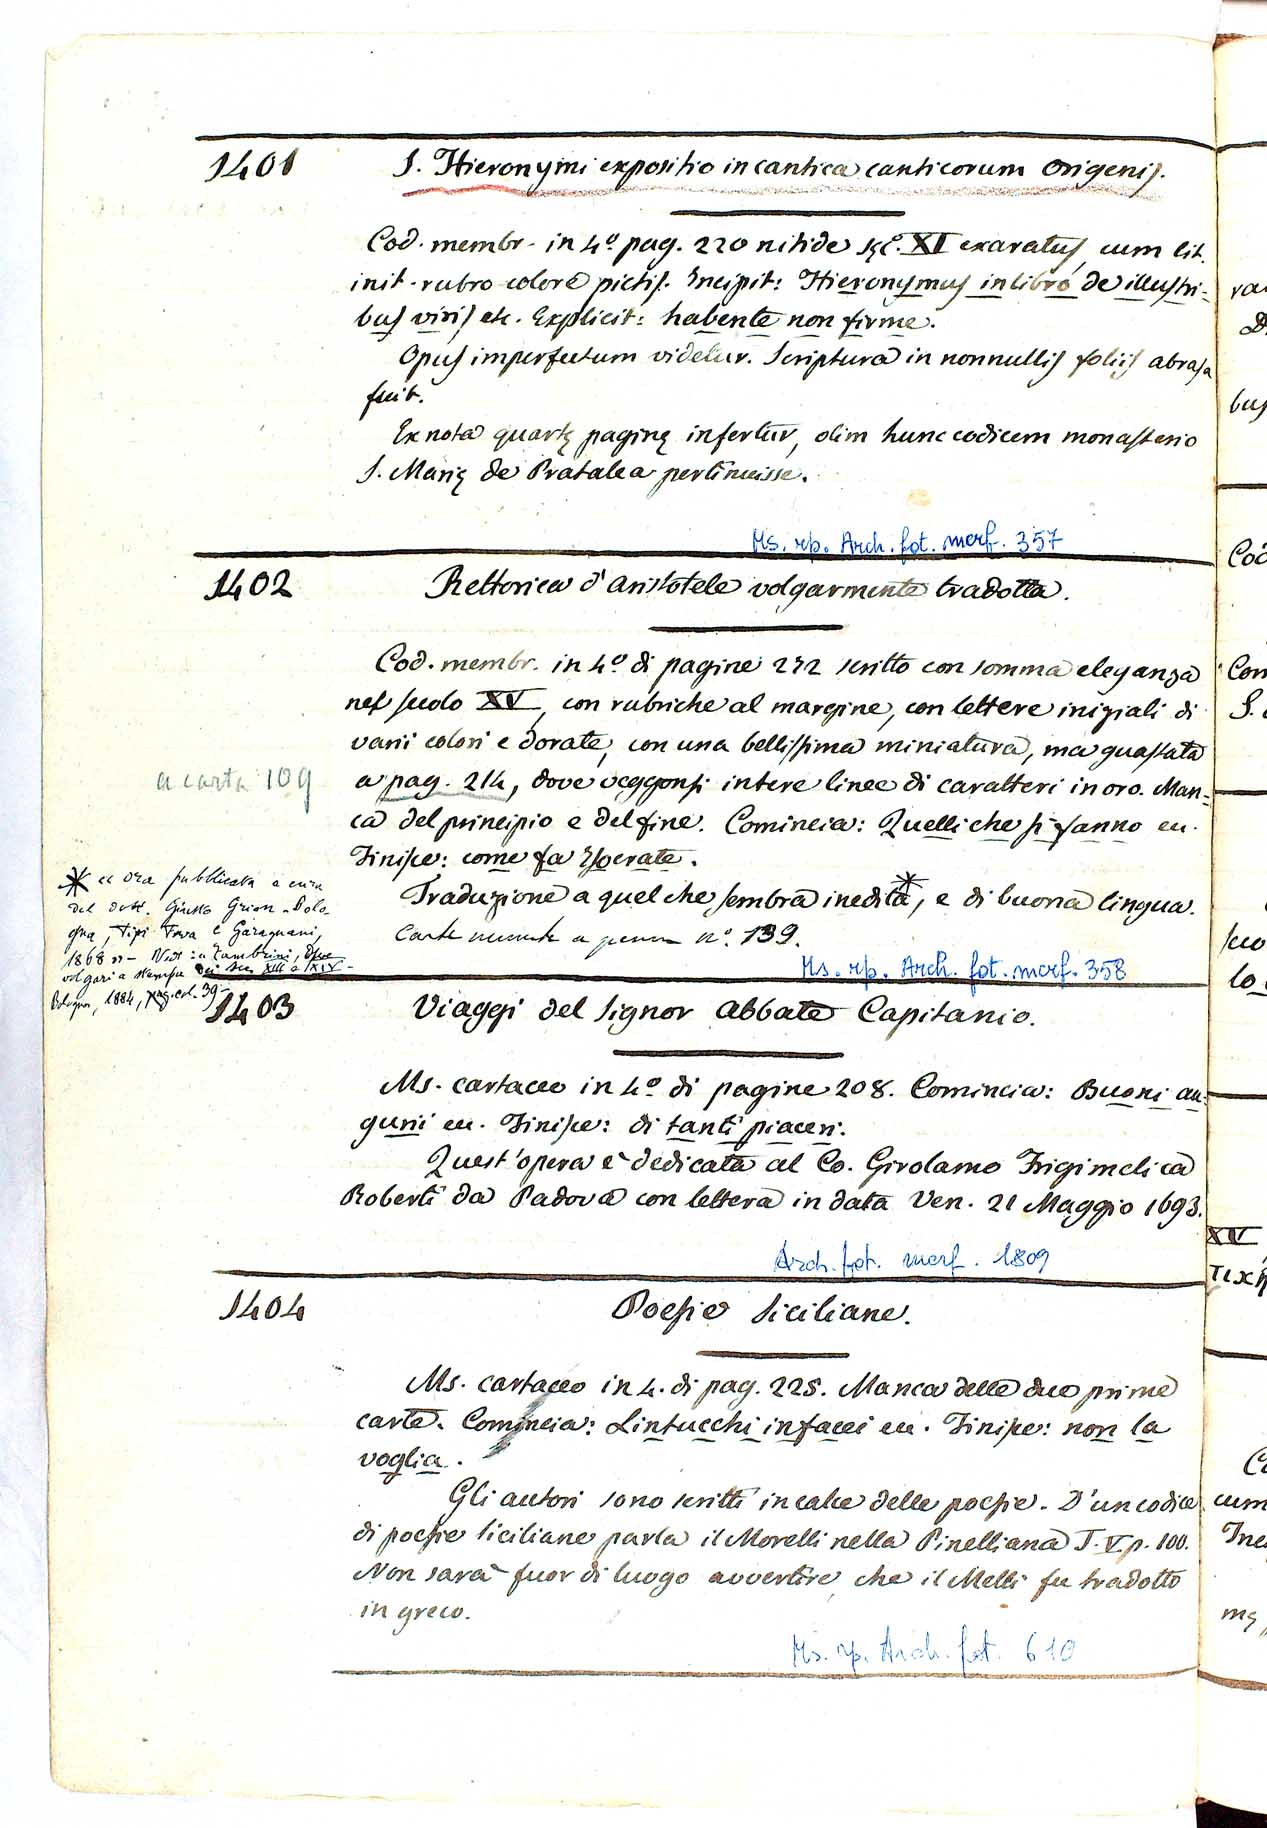 1401
S. Hieronymi expositio in cantica canticorum Origenis.
Cod. membr. in 4º pag. 220 nitide sęc. XI exaratus, cum lit.
init. rubro colore pictis. Incipit: Hieronymus in libro de illustri=
bus viris etc. Explicit: habente non firme.
Opus imperfectum videtur. Scriptura in nonnullis foliis abrasa
fuit.
Ex nota quartę paginę infertur, olim hunc codicem monasterio
S. Marię de Pratalea pertinuisse.
Ms. rip. Arch. fot. marf. 357
1402
Rettorica d'Aristotele volgarmente tradotta.
Cod. membr. in 4º di pagine 272 scritto con somma eleganza
nel secolo XV, con rubriche al margine, con lettere iniziali di
varii colori e dorate, con una bellissima miniatura, ma guastata
a carta 109
a pag. 214, dove veggonsi intere linee di caratteri in oro. Man=
ca del principio e del fine. Comincia: Quelli che si fanno ec.
Finisce: come fa Isocrate.
Traduzione a quel che sembra inedita*, e di buona lingua.
Carte numerate a penna nº. 139.
* ec ora pubblicata a cura
del dott. Giusto Grion - Bolo-
gna, Tipi Fava e Garagnani,
1868 - Vedi: Zambrini, Opere
volgari a stampa dei sec XIII e XIV -
Bologna, 1884, pag. col. 39 -
Ms. rip. Arch. fot. marf. 358
1403
Viaggi del Signor Abbate Capitanio.
Ms. cartaceo in 4º di pagine 208. Comincia: Buoni au=
gurii ec. Finisce: di tanti piaceri.
Quest'opera è dedicata al Co. Girolamo Frigimelica
Roberti da Padova con lettera in data Ven. 21 Maggio 1693.
Arch. fot. marf. 1809
1404
Poesie Siciliane.
Ms. cartaceo in 4. di pag. 225. Manca delle due prime
carte. Comincia: Lintucchi in facci ec. Finisce: non la
voglia.
Gli autori sono scritti in calce delle poesie. D'un codice
di poesie Siciliane parla il Morelli nella Pinelliana T. V. p. 100.
Non sarà fuor di luogo avvertire, che il Melli fu tradotto
in greco.
Ms. rip. Arch. fot. 610